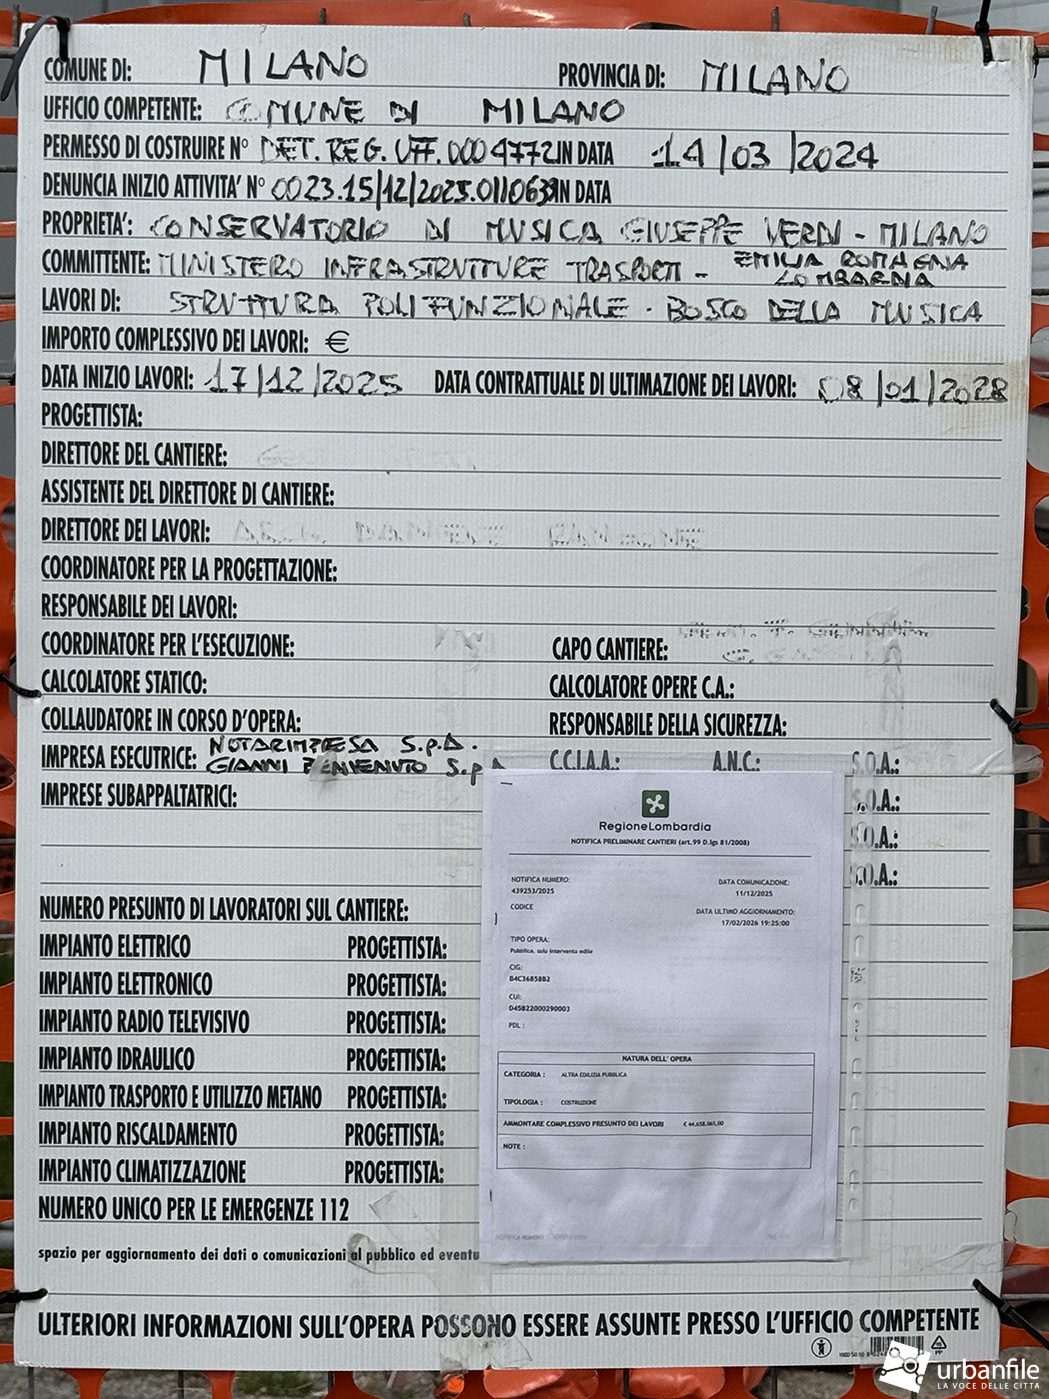 COMUNE DI: MILANO PROVINCIA DI: MILANO
UFFICIO COMPETENTE: COMUNE DI MILANO
PERMESSO DI COSTRUIRE N° DET. REG. UFF. 0004772 IN DATA 14/03/2024
DENUNCIA INIZIO ATTIVITA' N° 0023.15/12/2025.0110639 IN DATA
PROPRIETA': CONSERVATORIO DI MUSICA GIUSEPPE VERDI - MILANO
COMMITTENTE: MINISTERO INFRASTRUTTURE TRASPORTI - EMILIA ROMAGNA
LOMBARDIA
LAVORI DI: STRUTTURA POLIFUNZIONALE - BOSCO DELLA MUSICA
IMPORTO COMPLESSIVO DEI LAVORI: €
DATA INIZIO LAVORI: 17/12/2025 DATA CONTRATTUALE DI ULTIMAZIONE DEI LAVORI: 08/01/2028
PROGETTISTA:
DIRETTORE DEL CANTIERE:
ASSISTENTE DEL DIRETTORE DI CANTIERE:
DIRETTORE DEI LAVORI:
COORDINATORE PER LA PROGETTAZIONE:
RESPONSABILE DEI LAVORI:
COORDINATORE PER L'ESECUZIONE: CAPO CANTIERE:
CALCOLATORE STATICO: CALCOLATORE OPERE C.A.:
COLLAUDATORE IN CORSO D'OPERA: RESPONSABILE DELLA SICUREZZA:
IMPRESA ESECUTRICE: NOTARIMPRESA S.p.A.
GIANNI BENVENUTO S.p.A C.C.I.A.A.: A.N.C.: S.O.A.:
IMPRESE SUBAPPALTATRICI: S.O.A.:
S.O.A.:
S.O.A.:
NUMERO PRESUNTO DI LAVORATORI SUL CANTIERE:
IMPIANTO ELETTRICO PROGETTISTA:
IMPIANTO ELETTRONICO PROGETTISTA:
IMPIANTO RADIO TELEVISIVO PROGETTISTA:
IMPIANTO IDRAULICO PROGETTISTA:
IMPIANTO TRASPORTO E UTILIZZO METANO PROGETTISTA:
IMPIANTO RISCALDAMENTO PROGETTISTA:
IMPIANTO CLIMATIZZAZIONE PROGETTISTA:
NUMERO UNICO PER LE EMERGENZE 112
spazio per aggiornamento dei dati o comunicazioni al pubblico ed eventu
RegioneLombardia
NOTIFICA PRELIMINARE CANTIERI (art.99 D.lgs 81/2008)
NOTIFICA NUMERO:
439253/2025
DATA COMUNICAZIONE:
11/12/2025
CODICE
DATA ULTIMO AGGIORNAMENTO:
17/02/2026 19:25:00
TIPO OPERA:
Pubblica, solo intervento edile
CIG:
B4C36858B2
CUI:
D45B22000290003
PDL :
NATURA DELL' OPERA
CATEGORIA : ALTRA EDILIZIA PUBBLICA
TIPOLOGIA : COSTRUZIONE
AMMONTARE COMPLESSIVO PRESUNTO DEI LAVORI € 44.658.065,00
NOTE :
ULTERIORI INFORMAZIONI SULL'OPERA POSSONO ESSERE ASSUNTE PRESSO L'UFFICIO COMPETENTE
urbanfile
LA VOCE DELLE CITTÀ